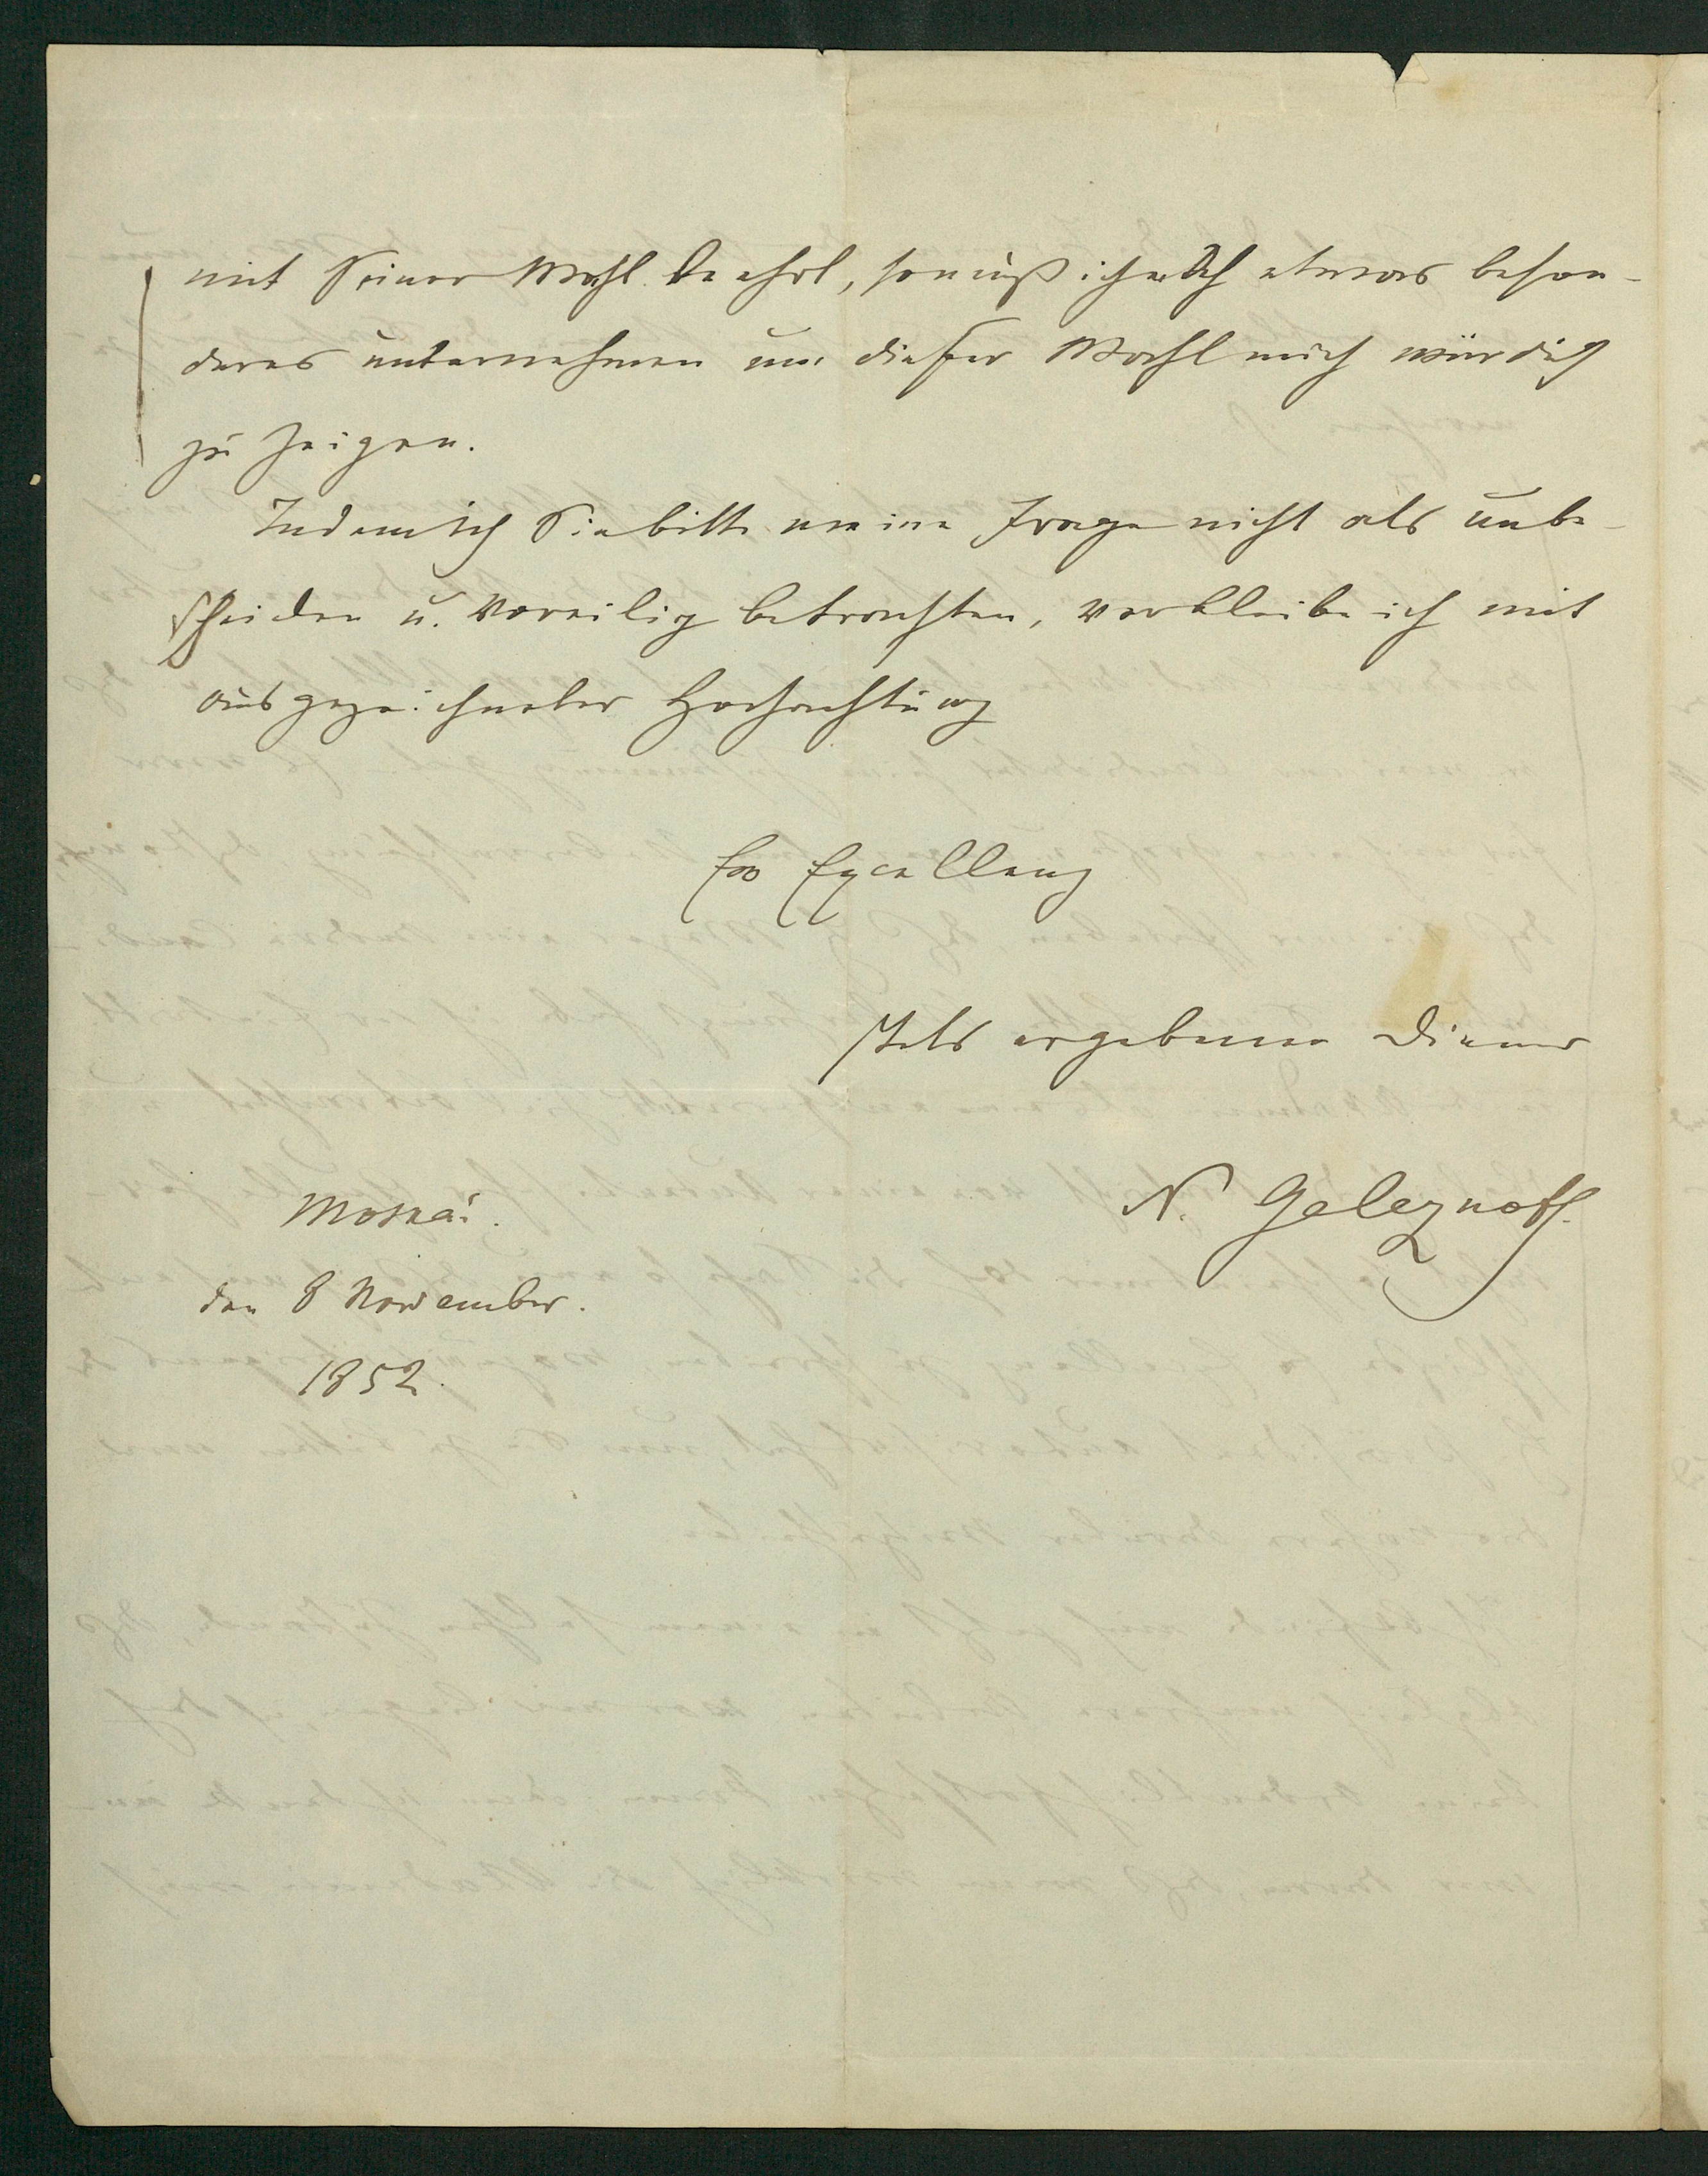 mit Seiner Wahl beehrt, so muß ich auch etwas beson-
deres unternehmen um dieser Wahl mich würdig
zu zeigen.
Indem ich Sie bitte meine Frage nicht als unbe-
scheiden u. voreilig betrachten, verbleibe ich mit
ausgezeichneter Hochachtung
Ew Excellenz
stets ergebener Diener
N. Geleznoff.
Moskau.
den 8 November.
1852.